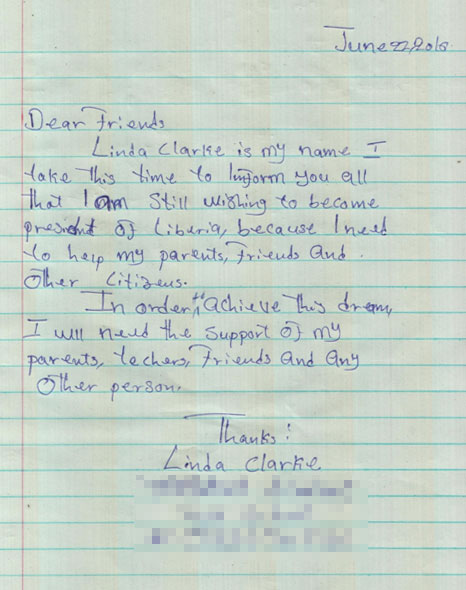 June 22, 2018
Dear Friends
Linda Clarke is my name I
take this time to Inform you all
that I am still wishing to become
president of Liberia, because I need
to help my parents, Friends and
other citizens.
In order to achieve this dream,
I will need the support of my
parents, techers, Friends and any
other person.
Thanks!
Linda Clarke